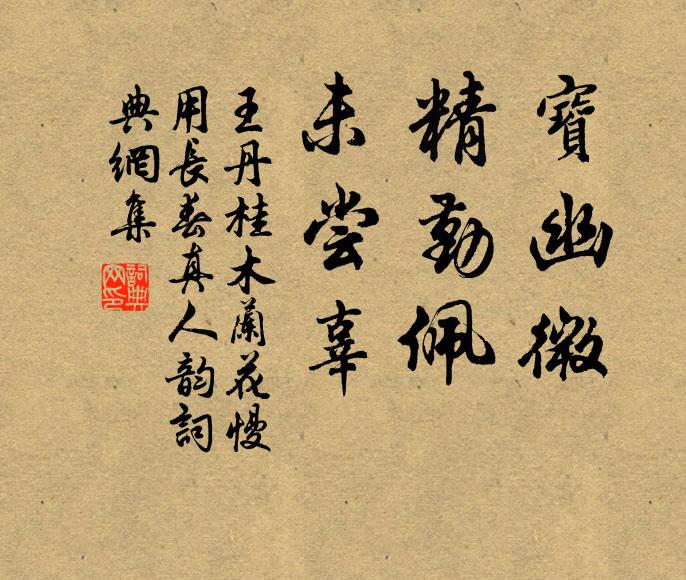 寶幽微
精勤佩
未嘗辜
王丹桂木蘭花慢
用長春真人韵詞
典網集
詞典
网印